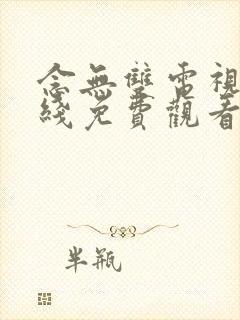 念無雙電視
綫免費觀看
半瓶